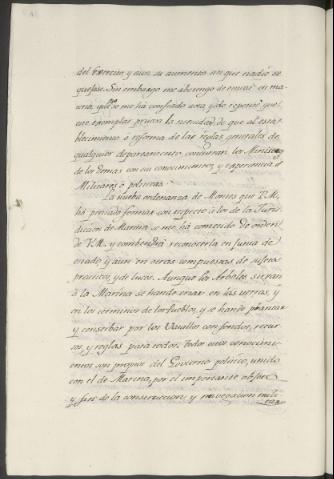 del Exercito, y aun su aumento sin que nadie se
quejase. Sin embargo me abstengo de entrar en ma
teria, q.e no se me ha confiado ahora, y solo expongo que
con exemplar prueva la necesidad de que al esta
blecimiento ò reforma de las reglas generales de
qualquier departamento, concurran los Ministros
de los demas con sus conocimientos, y experiencias
Militares ò politicas.
La nueva ordenanza de Montes que V. M.
ha privado formar con respecto à los de la Juris
diccion de Marina se me ha comunicado de orden
de V. M. y combendrà reconocerla en Junta de
estado, y aun en otras compuestas de sugetos
practicos, y de luces. Aunque los Arboles sirvan
à la Marina se han de criar en las tierras, y
en los terminos de los Pueblos, y se han de plantar
y conserbar por los Vasallos con fondos, recur
sos, y reglas para todos: todos estos conocimi
entos son propios del Govierno politico, unido
con el de Marina, por el importante objeto
y fin de la construccion, y navegacion mili
tar